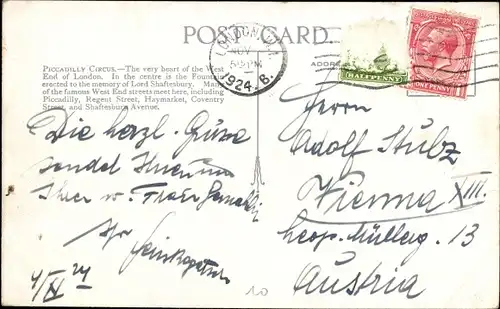 POST CARD.
PICCADILLY CIRCUS.—The very heart of the West
End of London. In the centre is the Fountain
erected to the memory of Lord Shaftesbury. Many
of the famous West End streets meet here, including
Piccadilly, Regent Street, Haymarket, Coventry
Street, and Shaftesbury Avenue.
LONDON
NOV
1924. B.
HALFPENNY
ONE PENNY
Die herzl. Grüsse
sendet Ihnen u
Ihrer w. Frau Gemahlin
Ihr
4/XI 24
Herrn
Adolf Stülz
Vienna XIII.
Leop. Müllerg. 13
Austria
10